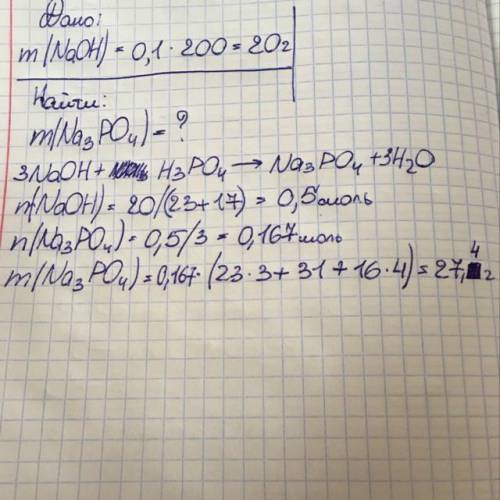 Дано:
m(NaOH) = 0,1 · 200 = 20г
Найти:
m(Na₃PO₄) = ?
3NaOH + H₃PO₄ → Na₃PO₄ + 3H₂O
n(NaOH) = 20/(23+17) = 0,5 моль
n(Na₃PO₄) = 0,5/3 = 0,167 моль
m(Na₃PO₄) = 0,167 · (23·3 + 31 + 16·4) = 27,4 г